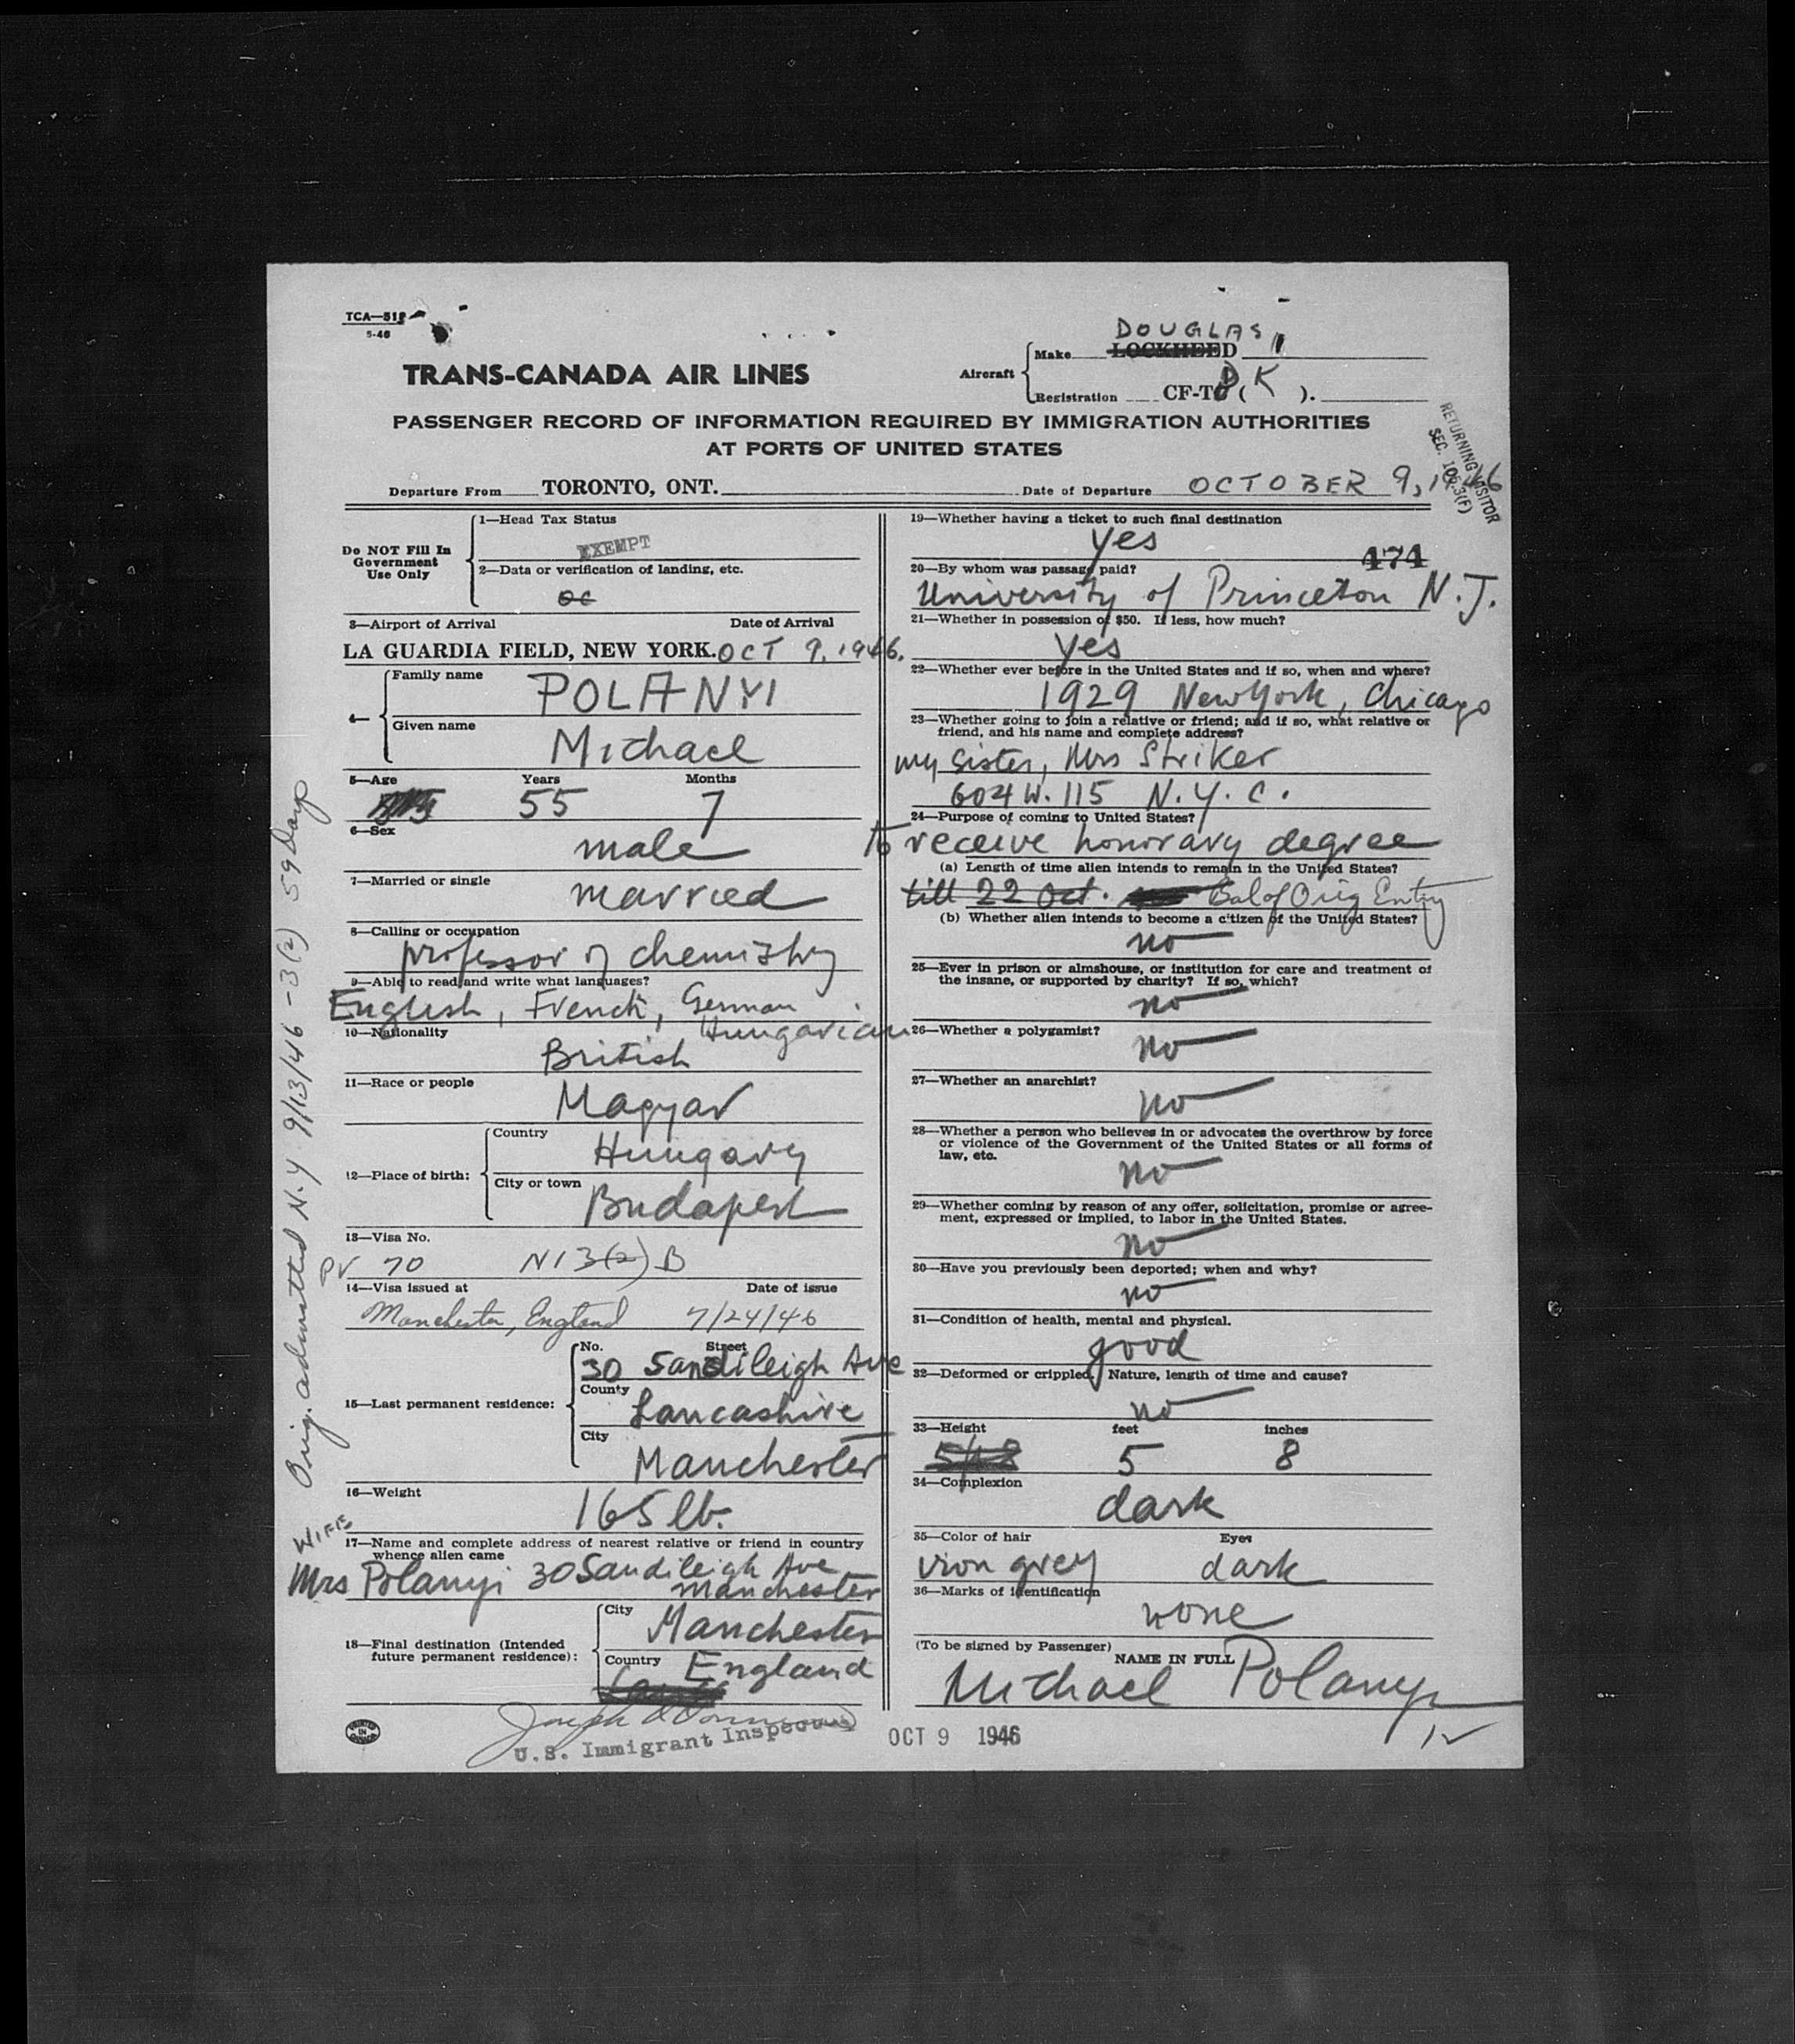 TCA—518
5-46
DOUGLAS
TRANS-CANADA AIR LINES
Aircraft
Make LOCKHEED
Registration CF-T D (K ).
PASSENGER RECORD OF INFORMATION REQUIRED BY IMMIGRATION AUTHORITIES
AT PORTS OF UNITED STATES
RETURNING VISITOR
SEC. 165.3(F)
Departure From TORONTO, ONT. Date of Departure OCTOBER 9, 1946
Do NOT Fill In
Government
Use Only
1—Head Tax Status
EXEMPT
2—Data or verification of landing, etc.
OC
3—Airport of Arrival Date of Arrival
LA GUARDIA FIELD, NEW YORK. OCT 9, 1946.
4—
Family name
POLANYI
Given name
Michael
5—Age Years Months
55 7
6—Sex
male
7—Married or single
married
8—Calling or occupation
professor of chemistry
9—Able to read and write what languages?
English, French, German
Hungarian
10—Nationality
British
11—Race or people
Magyar
12—Place of birth:
Country
Hungary
City or town
Budapest
13—Visa No.
PV 70 N I 3(2) B
14—Visa issued at Date of issue
Manchester, England 7/24/46
15—Last permanent residence:
No. Street
30 Sandileigh Ave
County
Lancashire
City
Manchester
16—Weight
165 lb.
WIFE
17—Name and complete address of nearest relative or friend in country
whence alien came
Mrs Polanyi 30 Sandileigh Ave
Manchester
18—Final destination (Intended
future permanent residence):
City
Manchester
Country England
U.S. Immigrant Inspector
Orig. admitted N.Y. 9/13/46 - 3(2) 59 Days
19—Whether having a ticket to such final destination
yes
474
20—By whom was passage paid?
University of Princeton N.J.
21—Whether in possession of $50. If less, how much?
yes
22—Whether ever before in the United States and if so, when and where?
1929 New York, Chicago
23—Whether going to join a relative or friend; and if so, what relative or
friend, and his name and complete address?
my sister, Mrs Striker
604 W. 115 N.Y.C.
24—Purpose of coming to United States?
to receive honorary degree
(a) Length of time alien intends to remain in the United States?
till 22 Oct. Bal of Orig Entry
(b) Whether alien intends to become a citizen of the United States?
no
25—Ever in prison or almshouse, or institution for care and treatment of
the insane, or supported by charity? If so, which?
no
26—Whether a polygamist?
no
27—Whether an anarchist?
no
28—Whether a person who believes in or advocates the overthrow by force
or violence of the Government of the United States or all forms of
law, etc.
no
29—Whether coming by reason of any offer, solicitation, promise or agree-
ment, expressed or implied, to labor in the United States.
no
30—Have you previously been deported; when and why?
no
31—Condition of health, mental and physical.
good
32—Deformed or crippled. Nature, length of time and cause?
no
33—Height feet inches
5 8
34—Complexion
dark
35—Color of hair Eyes
iron grey dark
36—Marks of identification
none
(To be signed by Passenger)
NAME IN FULL
Michael Polanyi
OCT 9 1946